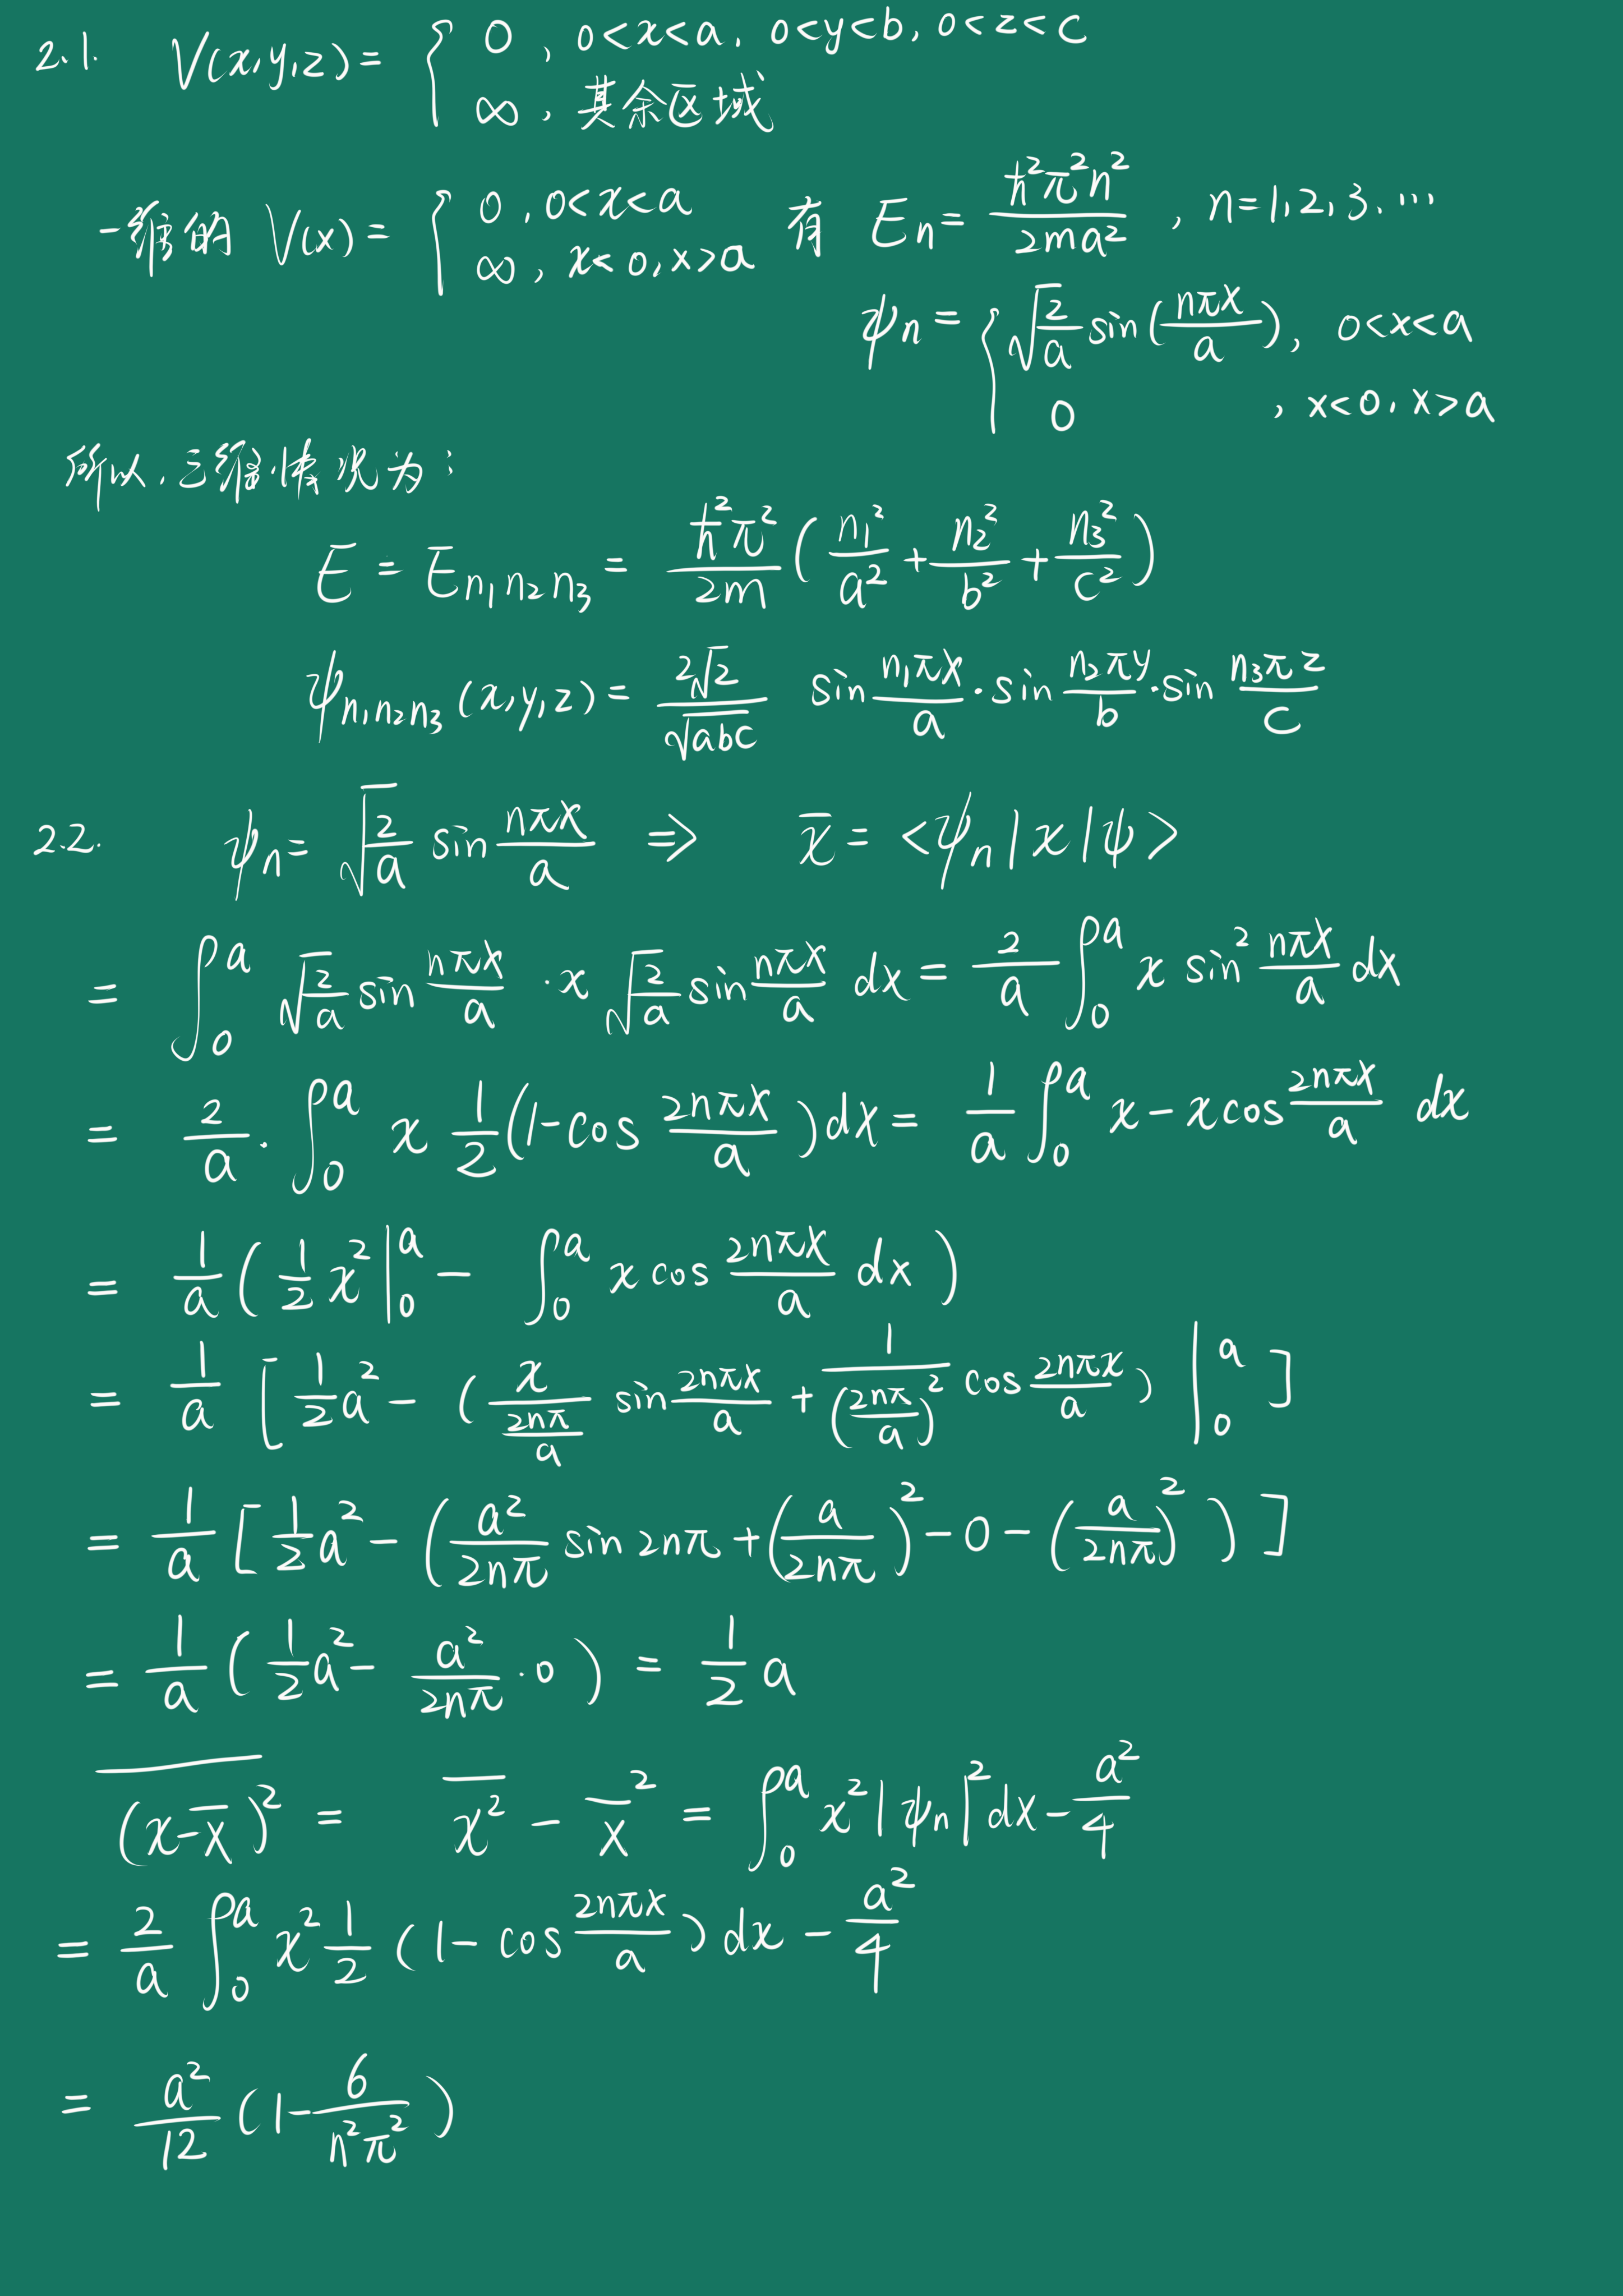 2.1. V(x,y,z) = { 0, 0<x<a, 0<y<b, 0<z<c
∞, 其余区域
一维的 V(x) = { 0, 0<x<a
∞, x<0, x>a 有 E_n = ħ²π²n² / 2ma² , n=1,2,3,…
ψ_n = { √(2/a) sin(nπx/a), 0<x<a
0 , x<0, x>a
所以,三维情况为:
E = E_{n₁n₂n₃} = ħ²π²/2m (n₁²/a² + n₂²/b² + n₃²/c²)
ψ_{n₁n₂n₃}(x,y,z) = 2√2/√abc sin n₁πx/a · sin n₂πy/b · sin n₃πz/c
2.2. ψ_n = √(2/a) sin nπx/a ⇒ x̄ = <ψ_n|x|ψ>
= ∫₀ᵃ √(2/a) sin nπx/a · x √(2/a) sin nπx/a dx = 2/a ∫₀ᵃ x sin² nπx/a dx
= 2/a · ∫₀ᵃ x 1/2 (1-cos 2nπx/a) dx = 1/a ∫₀ᵃ x - x cos 2nπx/a dx
= 1/a (1/2 x² |₀ᵃ - ∫₀ᵃ x cos 2nπx/a dx)
= 1/a [1/2 a² - (x/(2nπ/a) sin 2nπx/a + 1/(2nπ/a)² cos 2nπx/a) |₀ᵃ]
= 1/a [1/2 a² - (a²/2nπ sin 2nπ + (a/2nπ)² - 0 - (a/2nπ)²)]
= 1/a (1/2 a² - a²/2nπ · 0) = 1/2 a
\overline{(x-x̄)²} = \overline{x²} - x̄² = ∫₀ᵃ x²|ψ_n|² dx - a²/4
= 2/a ∫₀ᵃ x² 1/2 (1-cos 2nπx/a) dx - a²/4
= a²/12 (1 - 6/n²π²)